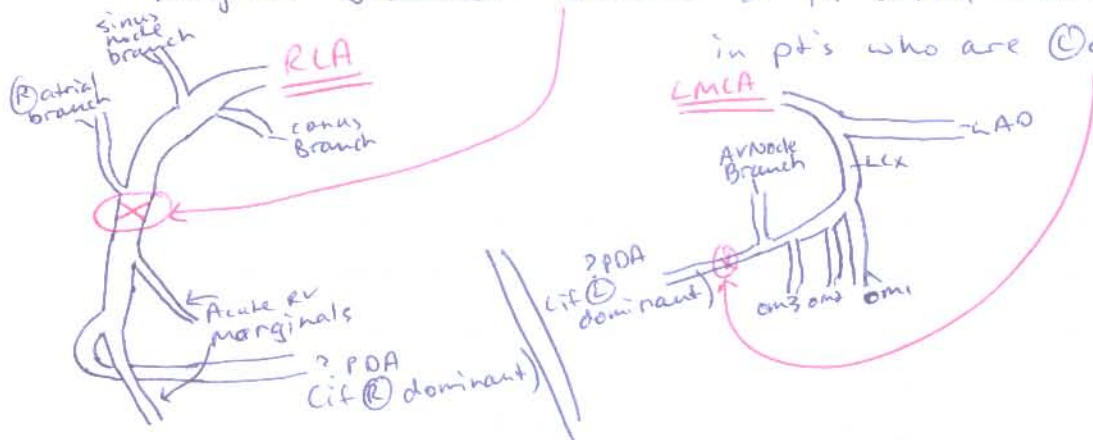 in pt's who are Ⓛ
sinus
node
branch
Ⓡ atrial
branch
RCA
conus
Branch
Acute RV
marginals
? PDA
(if Ⓡ dominant)
LMCA
LAD
LCx
AV Node
Branch
? PDA
(if Ⓛ
dominant)
om3 om2 om1